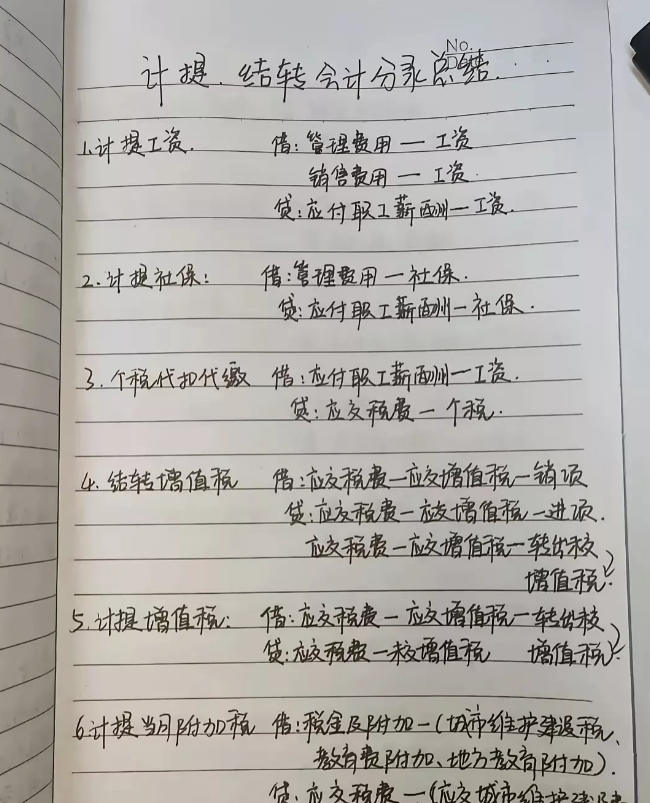 No.
计提、结转会计分录总结
1.计提工资. 借:管理费用一工资
销售费用一工资.
贷:应付职工薪酬一工资.
2.计提社保: 借:管理费用一社保.
贷:应付职工薪酬一社保.
3.个税代扣代缴 借:应付职工薪酬一工资.
贷:应交税费一个税.
4.结转增值税 借:应交税费一应交增值税一销项
贷:应交税费一应交增值税一进项.
应交税费一应交增值税一转出未交
增值税.
5.计提增值税: 借:应交税费一应交增值税一转出未交
贷:应交税费一未交增值税 增值税.
6.计提当月附加税 借:税金及附加一(城市维护建设税、
教育费附加、地方教育附加).
贷:应交税费一(应交城市维护建设